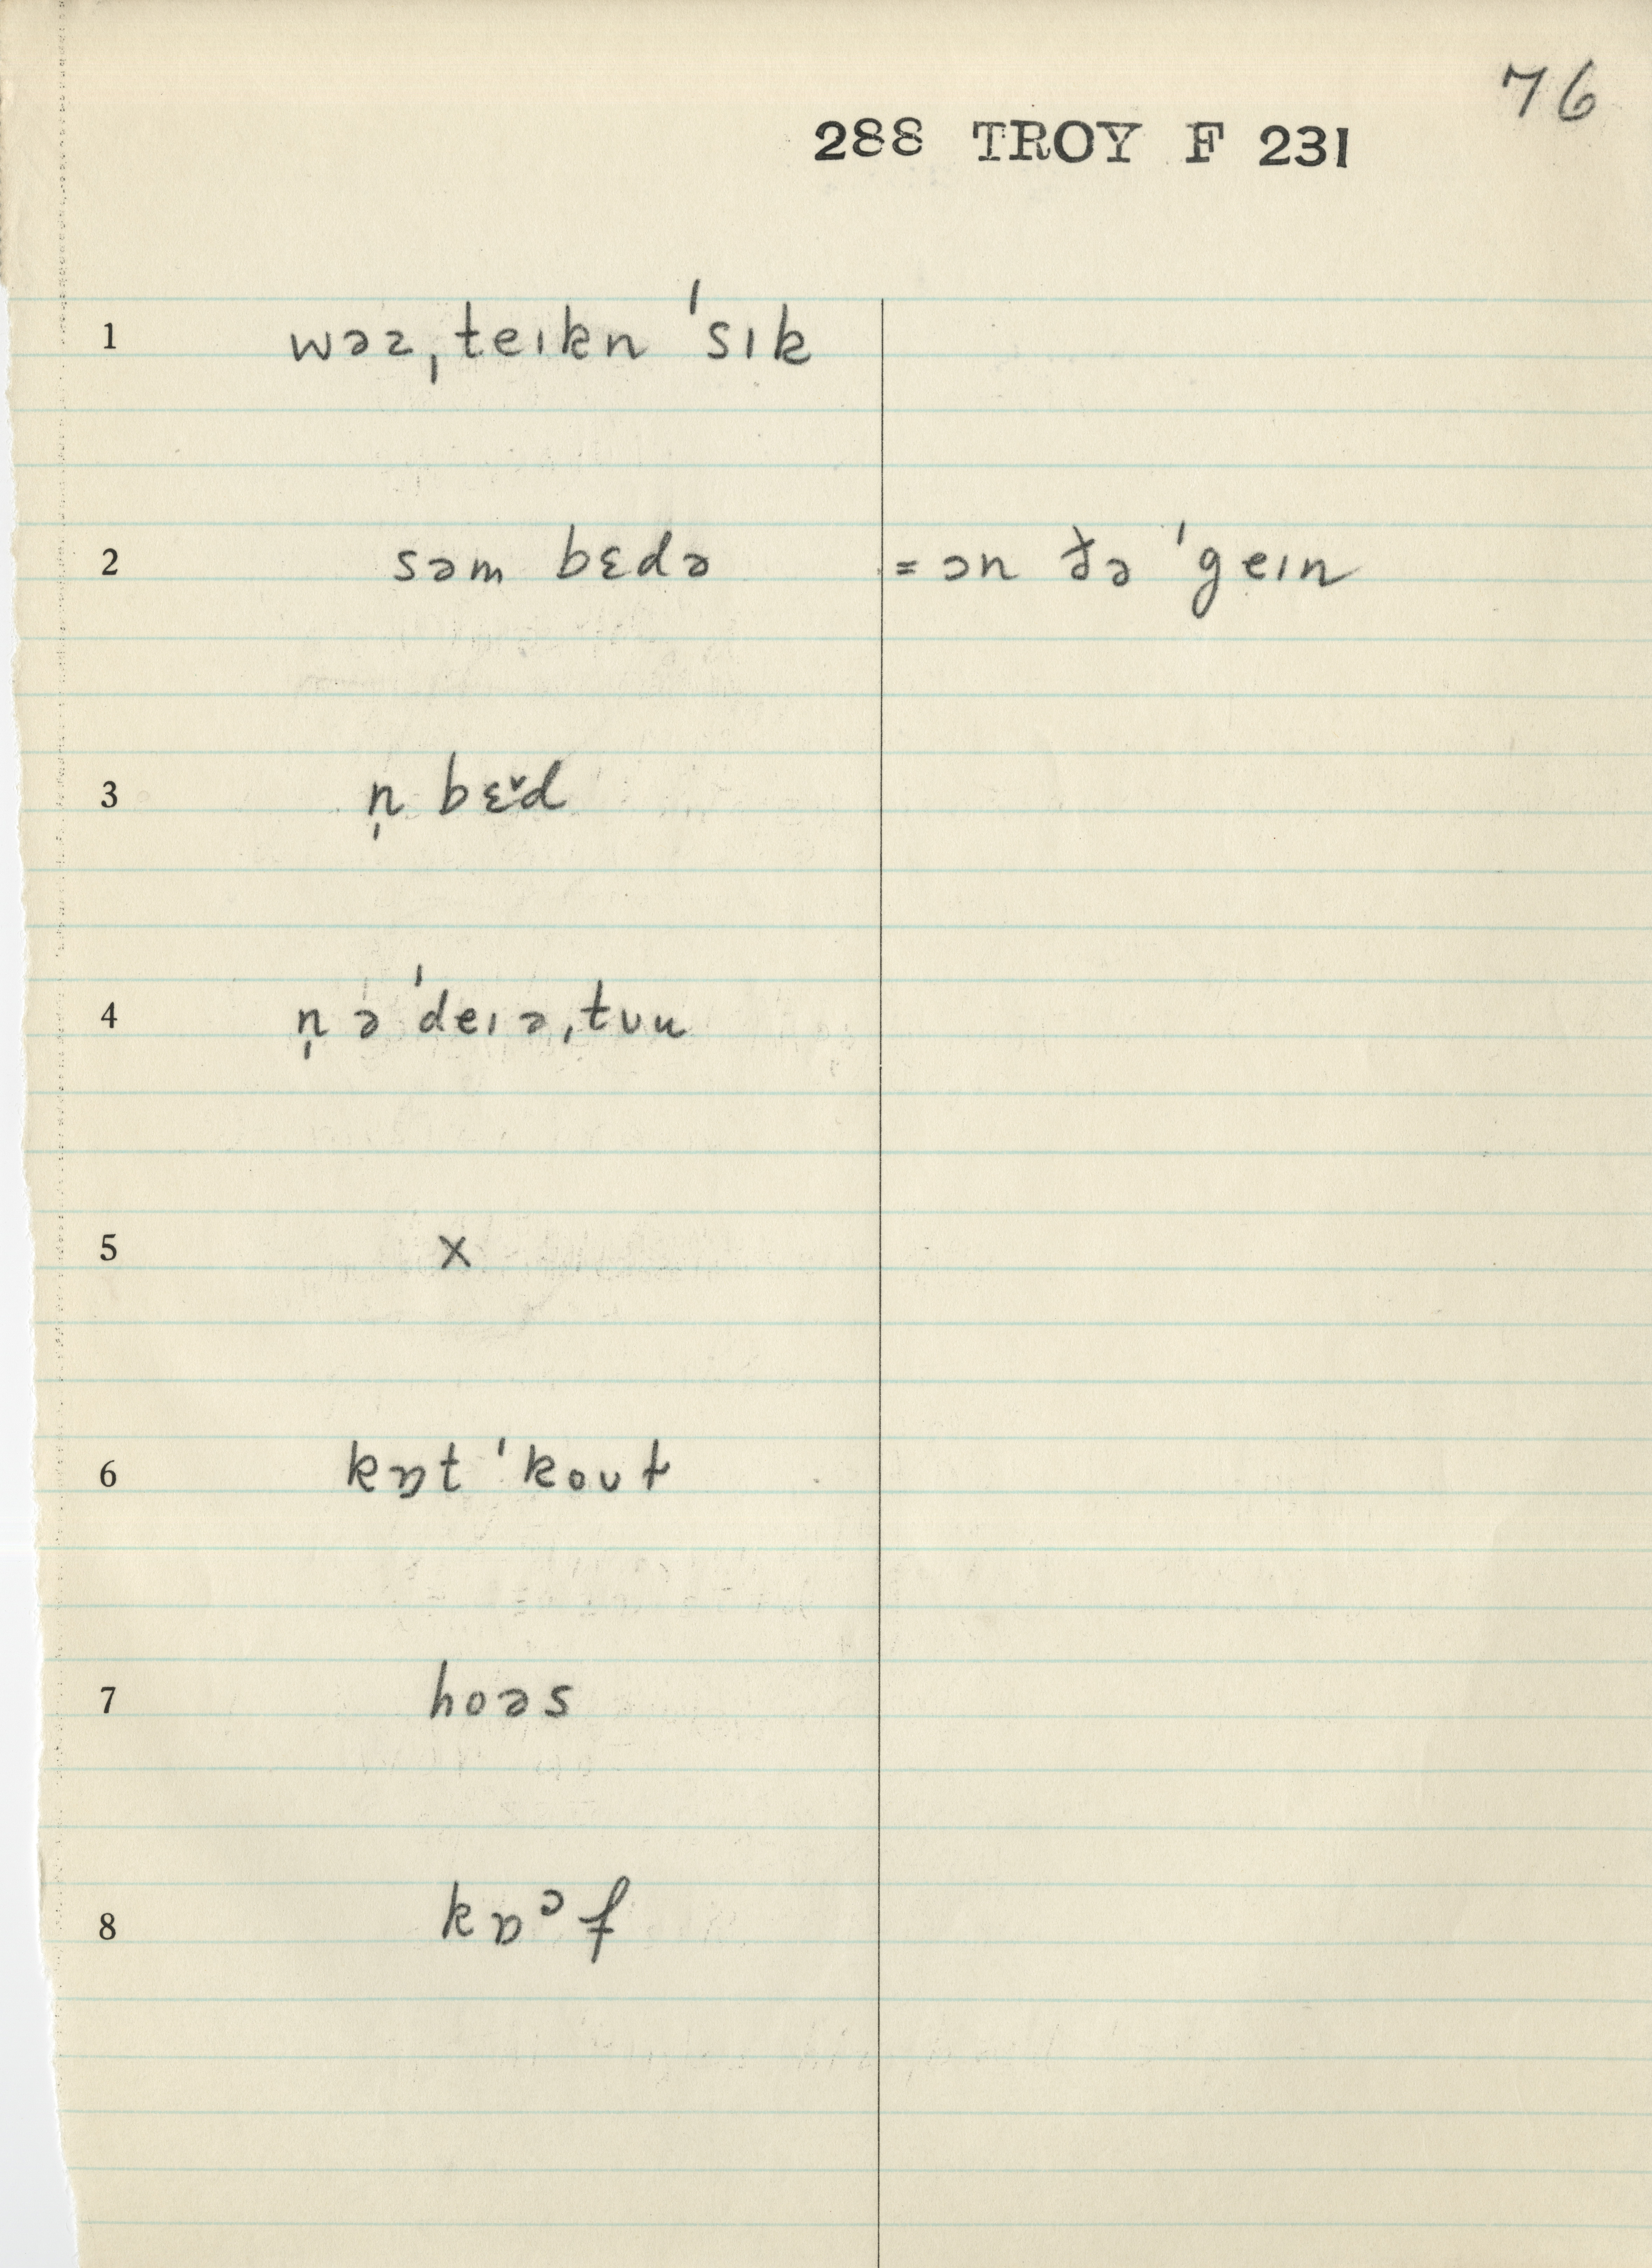 76
288 TROY F 231
1 wəz ˌteɪkn ˈsɪk
2 səm bɛdə = ɔn ðə ˈgeɪn
3 n̩ bɛ˅d
4 n̩ ə ˈdeɪ ə ˌtuu
5 x
6 kɒt ˈkoʊt
7 hoəs
8 kɒᵊf